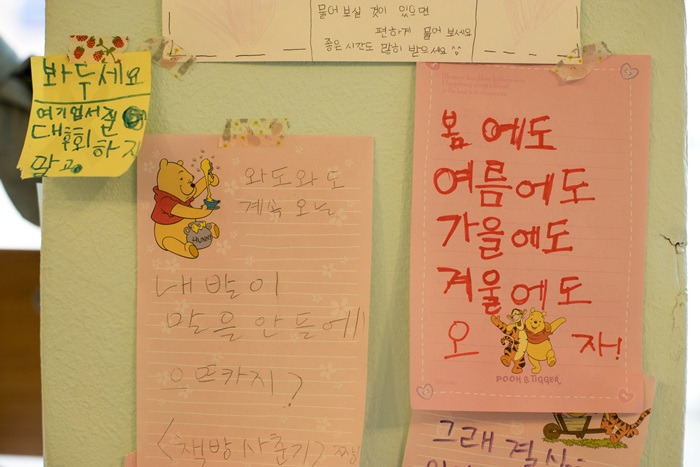 물어 보실 것이 있으면
편하게 물어 보세요
좋은 시간도 많히 받으세요
봐두세요
여기업서질
대후회하지
말고
와도와도
계속 오늘
내발이
말을 안 듣에
으쯔카지?
<책방 사춘기> 짱
HUNNY
봄에도
여름에도
가을에도
겨울에도
오 자!
POOH & TIGGER
그래 결심